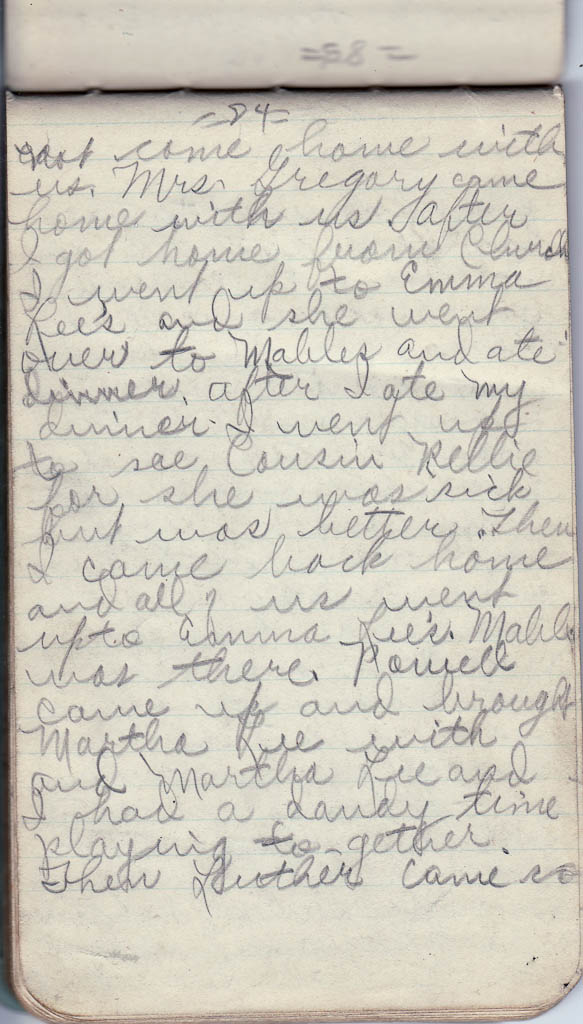 =58=
=84=
not come home with
us. Mrs. Gregory came
home with us after
I got home from Church
I went up to Emma
Lee's and she went
over to Mables and ate
dinner. after I ate my
dinner. I went up
to see Cousin Kellie
for she was sick
but was better. Then
I came back home
and all of us went
up to Emma Lee's. Mable
was there. Powell
came up and brought
Martha Lee with
and Martha Lee and
I had a dandy time
playing to-gether.
Then Luther came